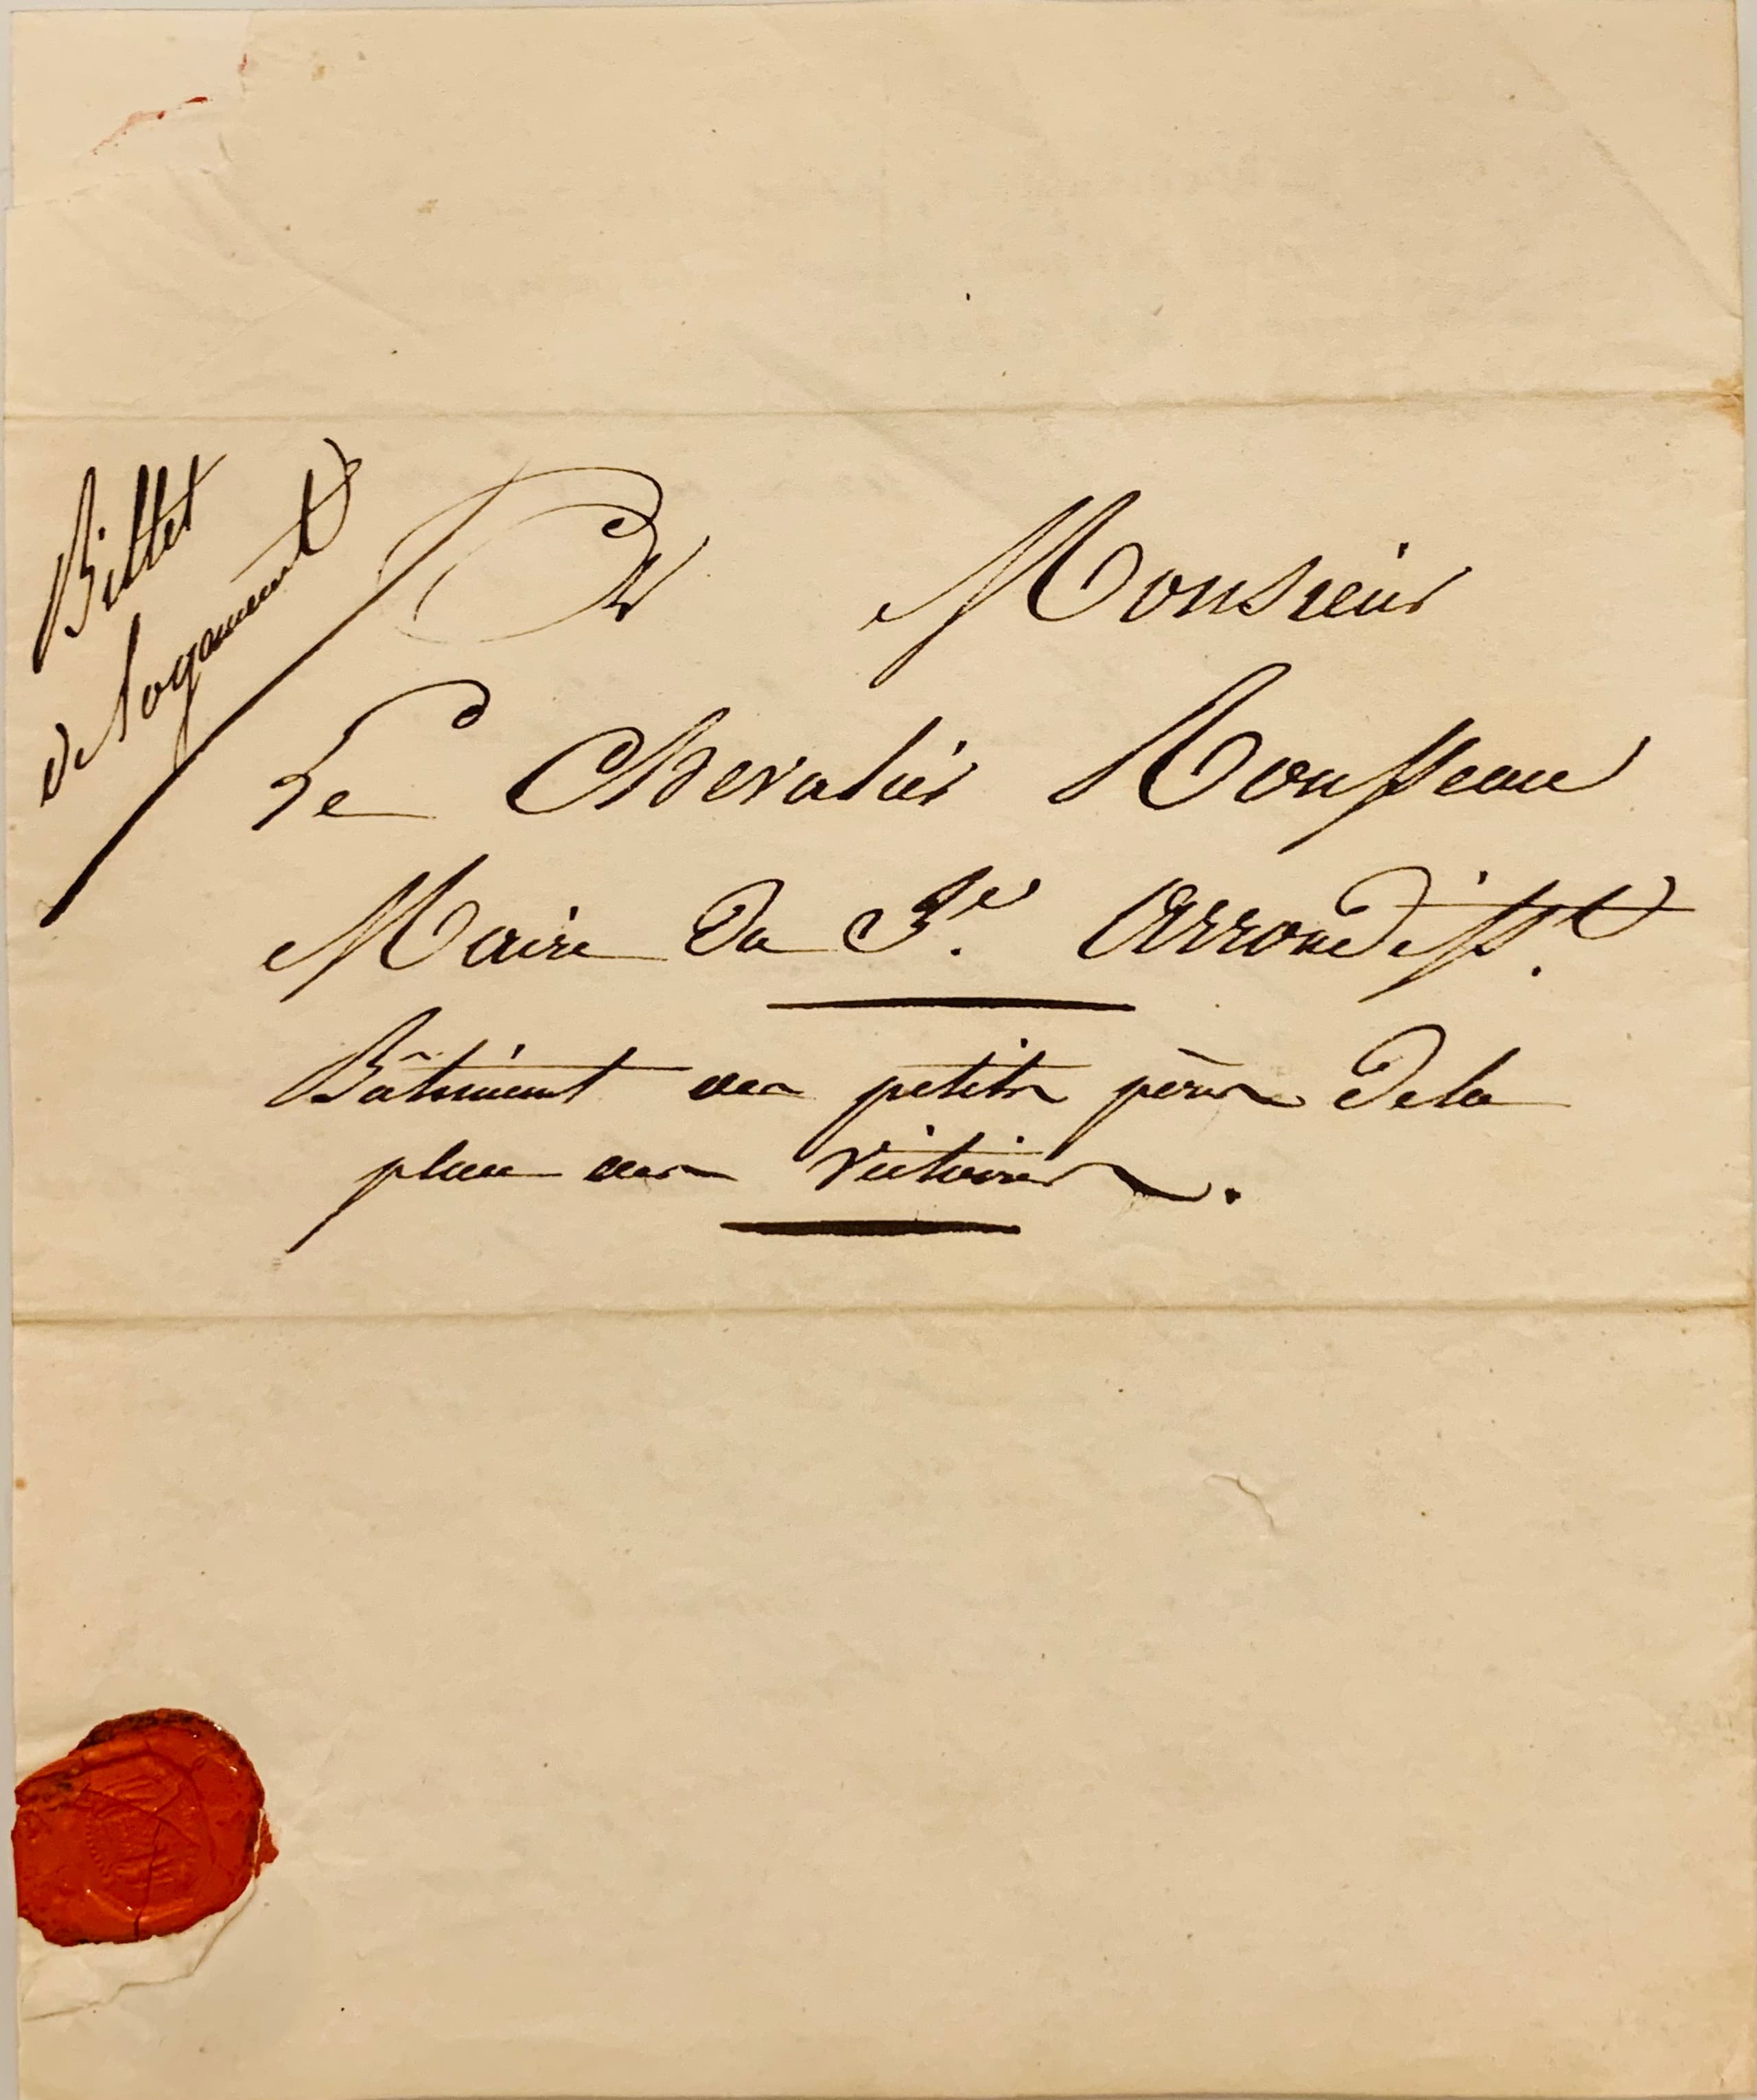 Billet
de logement
A Monsieur
Le Chevalier Rousseau
Maire du 3e. Arrondisst.
Bâtiment des petits pères de la
place des Victoires.